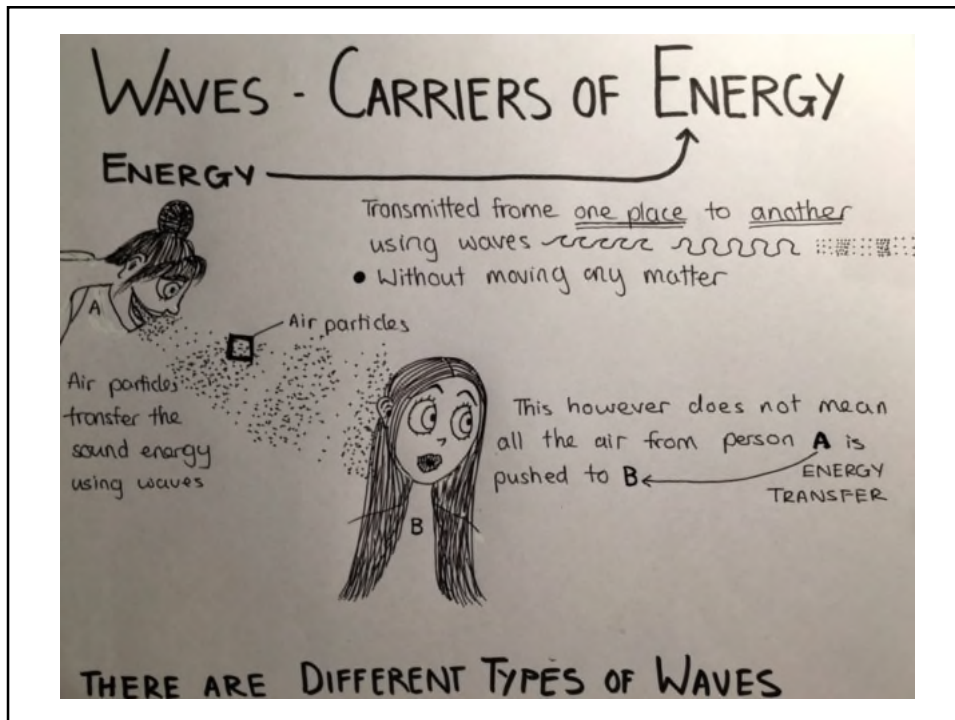 WAVES - CARRIERS OF ENERGY
ENERGY
Transmitted frome one place to another
using waves
• Without moving any matter
A
Air particles
Air particles
transfer the
sound energy
using waves
This however does not mean
all the air from person A is
pushed to B
ENERGY
TRANSFER
B
THERE ARE DIFFERENT TYPES OF WAVES